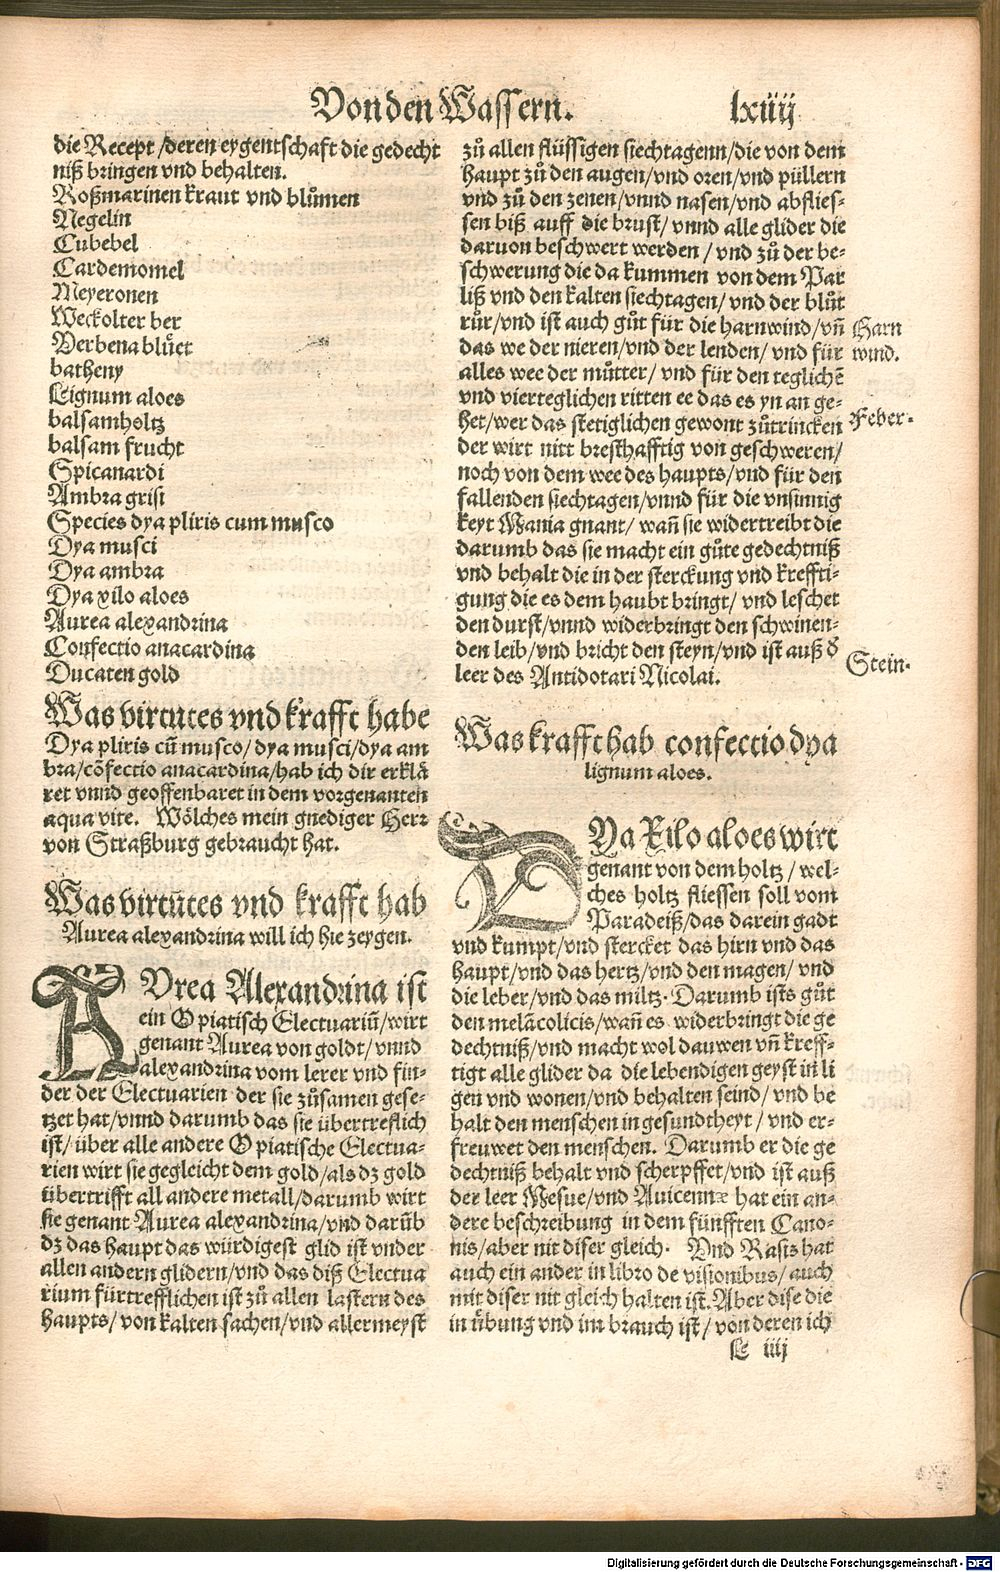 Von den Wassern.
lxiiij
die Recept/deren eygentschafft die gedecht
niß bringen vnd behalten.
Roßmarinen kraut vnd blůmen
Negelin
Cubebel
Cardemomel
Meyeronen
Weckolter ber
Verbena blůet
batheny
Lignum aloes
balsamholtz
balsam frucht
Spicanardi
Ambra grisi
Species dya pliris cum musco
Dya musci
Dya ambra
Dya xilo aloes
Aurea alexandrina
Confectio anacardina
Ducaten gold
Was virtutes vnd krafft habe
Dya pliris cū musco/dya musci/dya am
bra/cōfectio anacardina/hab ich dir erklä
ret vnnd geoffenbaret in dem vorgenanten
aqua vite. Wölches mein gnediger Herr
von Straßburg gebraucht hat.
Was virtutes vnd krafft hab
Aurea alexandrina will ich hie zeygen.
AVrea Alexandrina ist
ein Opiatisch Electuariū/wirt
genant Aurea von goldt/vnnd
alexandrina vom lerer vnd fin-
der der Electuarien der sie zůsamen gese-
tzet hat/vnnd darumb das sie übertreflich
ist/über alle andere Opiatische Electua-
rien wirt sie gegleicht dem gold/als dz gold
übertrifft all andere metall/darumb wirt
sie genant Aurea alexandrina/vnd darūb
dz das haupt das würdigest glid ist vnder
allen andern glidern/vnd das diß Electua
rium fürtrefflichen ist zů allen lastern des
haupts/von kalten sachen/vnd allermeyst
zů allen flüssigen siechtagenn/die von dem
haupt zů den augen/vnd oren/vnd püllern
vnd zů den zenen/vnnd nasen/vnd abflies-
sen biß auff die brust/vnnd alle glider die
daruon beschwert werden/vnd zů der be-
schwerung die da kummen von dem Par
liß vnd den kalten siechtagen/vnd der blůt
růr/vnd ist auch gůt für die harnwind/vñ
das we der nieren/vnd der lenden/vnd für
alles wee der můtter/vnd für den teglichē
vnd vierteglichen ritten ee das es yn an ge-
het/wer das stetiglichen gewont zůtrincken
der wirt nitt bresthafftig von geschweren/
noch von dem wee des haupts/vnd für den
fallenden siechtagen/vnnd für die vnsinnig
keyt Mania gnant/wañ sie widertreibt die
darumb das sie macht ein gůte gedechtniß
vnd behalt die in der sterckung vnd kreffti-
gung die es dem haubt bringt/vnd leschet
den durst/vnnd widerbringt den schwinen-
den leib/vnd bricht den steyn/vnd ist auß d̄
leer des Antidotari Nicolai.
Harn
wind.
Feber.
Stein.
Was krafft hab confectio dya
lignum aloes.
DYa Xilo aloes wirt
genant von dem holtz/wel-
ches holtz fliessen soll vom
Paradeiß/das darein gadt
vnd kumpt/vnd stercket das hirn vnd das
haupt/vnd das hertz/vnd den magen/vnd
die leber/vnd das miltz. Darumb ists gůt
den melācolicis/wañ es widerbringt die ge
dechtniß/vnd macht wol dauwen vñ kreff-
tigt alle glider da die lebendigen geyst in li
gen vnd wonen/vnd behalten seind/vnd be
halt den menschen in gesundtheyt/vnd er-
freuwet den menschen. Darumb er die ge
dechtniß behalt vnd scherpffet/vnd ist auß
der leer Mesue/vnd Auicennæ hat ein an-
dere beschreibung in dem fünfften Cano-
nis/aber nit diser gleich. Vnd Rasis hat
auch ein ander in libro de visionibus/auch
mit diser nit gleich halten ist. Aber dise die
in übung vnd im brauch ist/von deren ich
L iiij
Digitalisierung gefördert durch die Deutsche Forschungsgemeinschaft - DFG